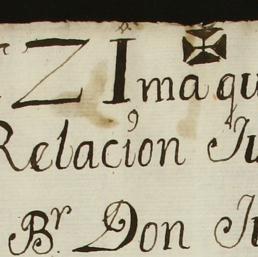 Z Imaqu
Relacion Ju
Br Don Ju